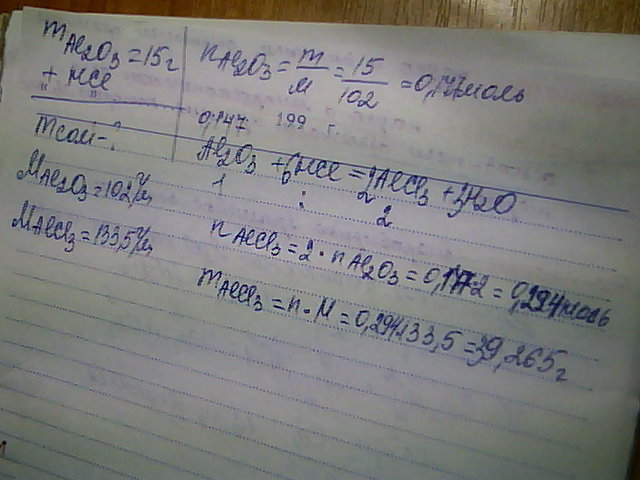 mAl₂O₃ = 15г
+ HCl
mсоли - ?
MAl₂O₃ = 102 г/м
MAlCl₃ = 133,5 г/м
nAl₂O₃ = m/M = 15/102 = 0,147 моль
0,147 199 г.
Al₂O₃ + 6HCl = 2AlCl₃ + 3H₂O
1 : 2
2
nAlCl₃ = 2 · nAl₂O₃ = 0,147·2 = 0,294 моль
mAlCl₃ = n · M = 0,294·133,5 = 39,265 г